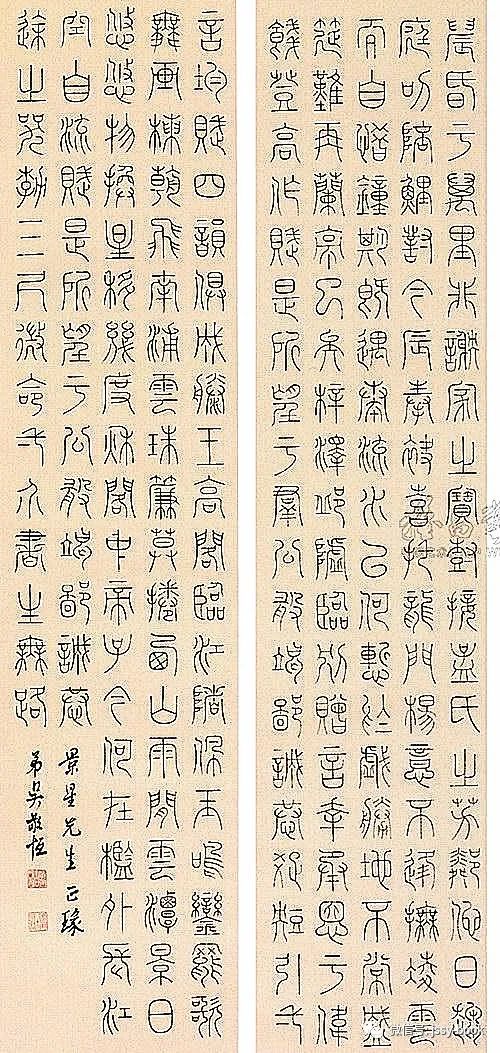 晨昏于萬里非謝家之寶樹接孟氏之芳鄰他日趨
庭叨陪鯉對今辰奉袂喜托龍門楊意不逢撫凌雲
而自惜鐘期既遇奏流水以何慙於戲勝地不常盛
筵難再蘭亭已矣梓澤邱墟臨別贈言幸承恩于偉
餞登高作賦是所望于群公敢竭鄙誠恭疏短引一
言均賦四韻俱成滕王高閣臨江渚佩玉鳴鸞罷歌
舞畫棟朝飛南浦雲珠簾莫捲西山雨閒雲潭景日
悠悠物換星移幾度秋閣中帝子今何在檻外長江
空自流賦是所望于公敢竭鄙誠恭
途之哭勃三尺微命一介書生無路
景星先生正瑑
弟吳敬恒